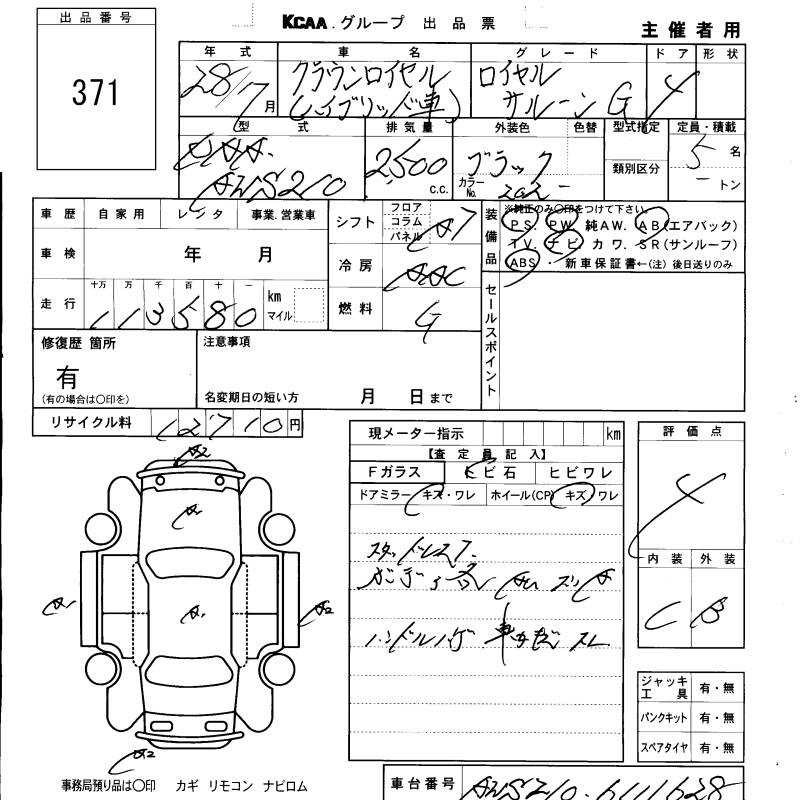 出品番号
371
KCAA.グループ 出品票
主催者用
年式 車名 グレード ドア 形状
28/7月 クラウンロイヤル (ハイブリッド車) ロイヤル サルーン G 4
型式 排気量 外装色 色替 型式指定 定員・積載
AWS210 2,500 c.c. ブラック カラーNo. 202 類別区分 5名 トン
車歴 自家用 レンタ 事業.営業車
車検 年 月
走行 十万 万 千 百 十 一 km マイル
113580
シフト フロア コラム パネル AT
冷房 AAC
燃料 G
装備品
※純正のみ〇印をつけて下さい。
PS. PW. 純AW. AB(エアバック)
TV. ナビ カワ. SR(サンルーフ)
ABS . 新車保証書←(注) 後日送りのみ
セールスポイント
修復歴 箇所
有
(有の場合は〇印を)
注意事項
名変期日の短い方 月 日まで
リサイクル料 12710円
現メーター指示 km
【査定員記入】
Fガラス ヒビ石 ヒビワレ
ドアミラー キズ・ワレ ホイール(CP) キズ/ワレ
スタッドレス
ハンドルハゲ
スレ
評価点
4
内装 外装
C B
A2
A1
A1
A1
A2
A2
ジャッキ工具 有・無
パンクキット 有・無
スペアタイヤ 有・無
事務局預り品は〇印 カギ リモコン ナビロム
車台番号 AWS210-6111628